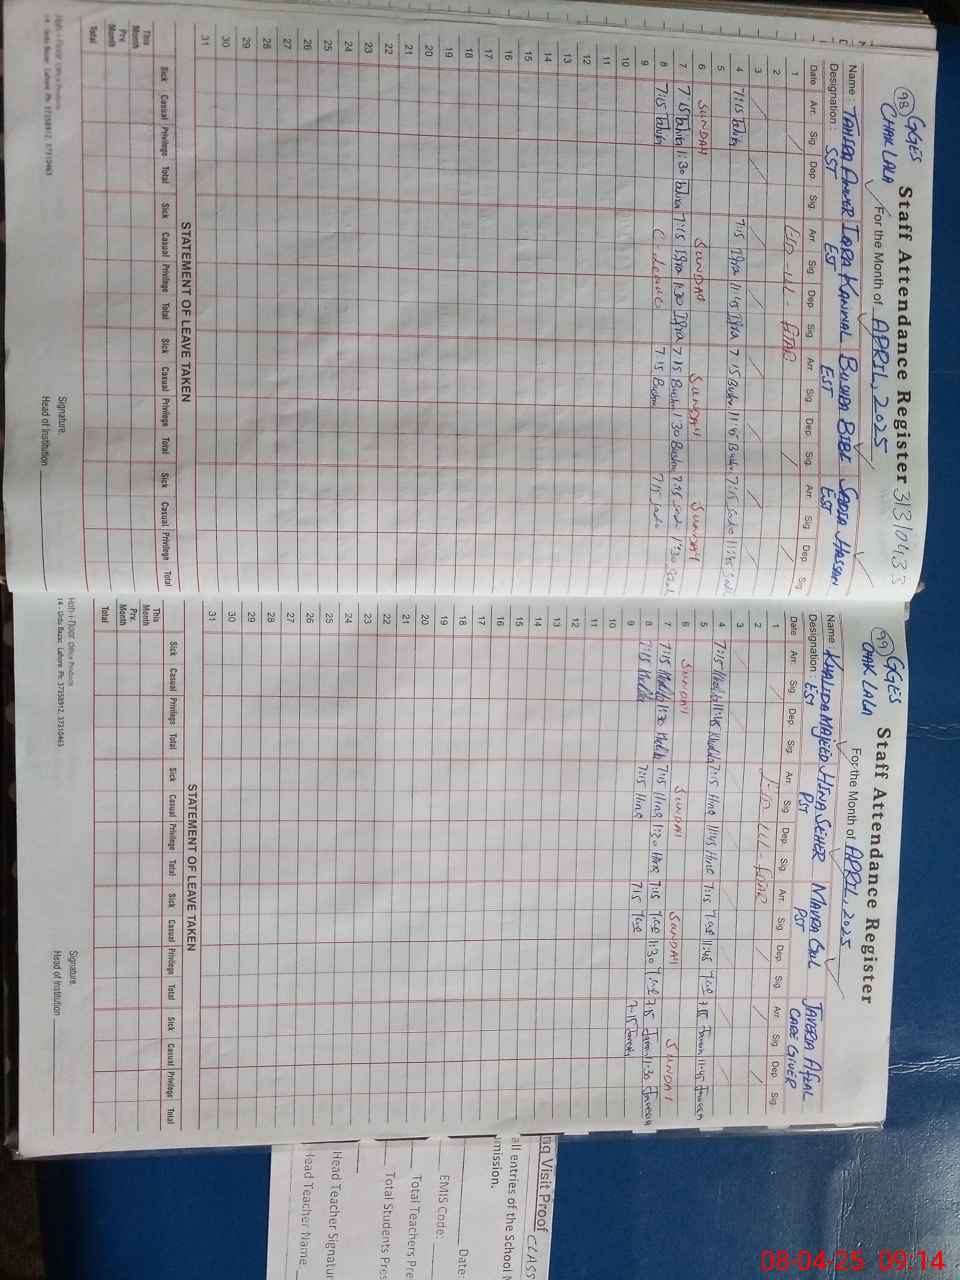 98 GGES
CHAK LALA
Staff Attendance Register
For the Month of APRIL, 2025
Name : IQRA KANWAL BUSHRA BIBI SADIA HASSAN
Designation : SST EST EST EST
Date Arr. Sig. Dep. Sig. Arr. Sig. Dep. Sig. Arr. Sig. Dep. Sig. Arr. Sig. Dep. Sig.
1
2
3
4 7:15 7:15 Iqra 11:45 Iqra 7:15 Bushra 11:45 Bushra 7:15 Sadia 11:45 Sadia
5
6 SUNDAY SUNDAY SUNDAY SUNDAY
7 7:15 1:30 7:15 Iqra 1:30 Iqra 7:15 Bushra 1:30 Bushra 7:15 Sadia 1:30 Sadia
8 7:15 C. Leave 7:15 Bushra 7:15 Sadia
9
10
11
12
13
14
15
16
17
18
19
20
21
22
23
24
25
26
27
28
29
30
31
STATEMENT OF LEAVE TAKEN
Sick Casual Privilege Total Sick Casual Privilege Total Sick Casual Privilege Total Sick Casual Privilege Total
This Month
Prv. Month
Total
Signature.
Head of Institution
14 - Urdu Bazar, Lahore. Ph: 37358912, 37310463
99 GGES
CHAK LALA
Staff Attendance Register
For the Month of APRIL, 2025
Name : KHALIDA MAJEED HINA SEHER GUL JAVERIA AFZAL
Designation : EST PST PST CARE GIVER
Date Arr. Sig. Dep. Sig. Arr. Sig. Dep. Sig. Arr. Sig. Dep. Sig. Arr. Sig. Dep. Sig.
1
2
3
4 7:15 Khalida 11:45 Khalida 7:15 Hina 11:45 Hina 7:15 11:45 7:15 Javeria 11:45 Javeria
5
6 SUNDAY SUNDAY SUNDAY SUNDAY
7 7:15 Khalida 1:30 Khalida 7:15 Hina 1:30 Hina 7:15 1:30 7:15 Javeria 1:30 Javeria
8 7:15 Khalida 7:15 Hina 7:15 7:15 Javeria
9
10
11
12
13
14
15
16
17
18
19
20
21
22
23
24
25
26
27
28
29
30
31
STATEMENT OF LEAVE TAKEN
Sick Casual Privilege Total Sick Casual Privilege Total Sick Casual Privilege Total Sick Casual Privilege Total
This Month
Prv. Month
Total
Signature.
Head of Institution
14 - Urdu Bazar, Lahore. Ph: 37358912, 37310463
Visit Proof CLASS
all entries of the School
Date:
EMIS Code:
Total Teachers Pre
Total Students Pres
Head Teacher Signatur
Head Teacher Name
08-04-25 09:14